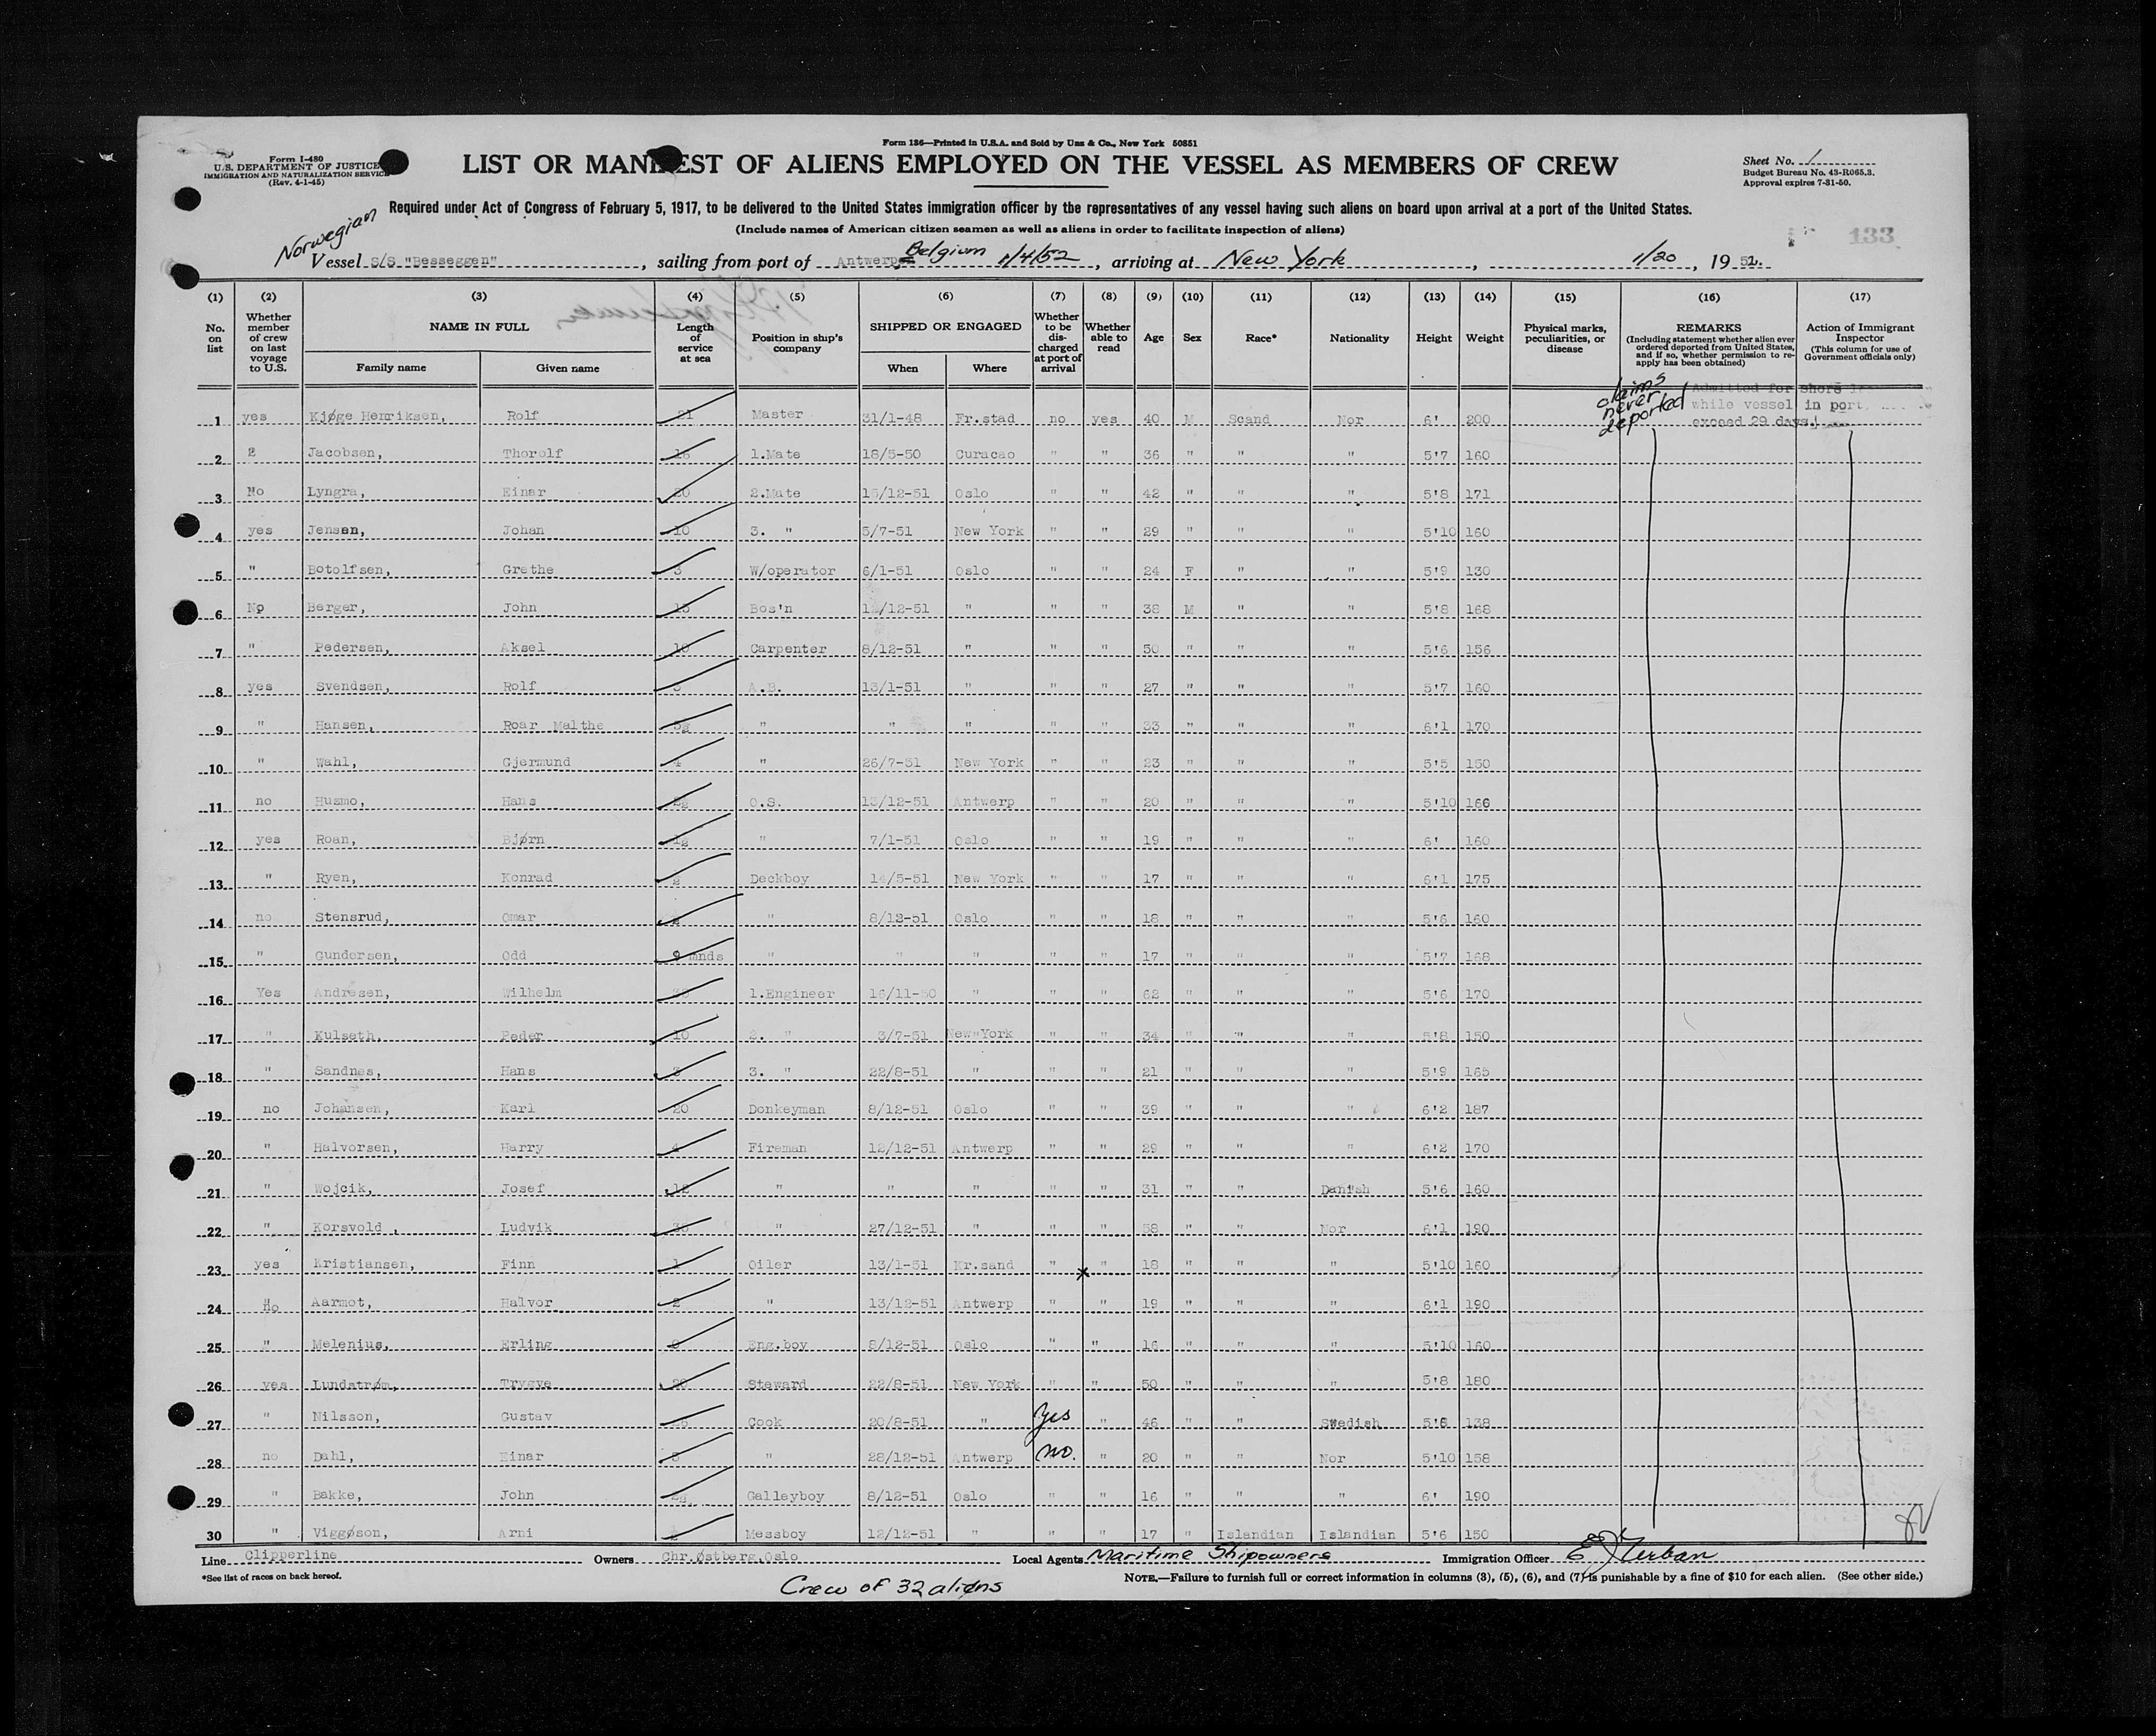 Form 136—Printed in U.S.A. and Sold by Unz & Co., New York 50851
Form I-480
U.S. DEPARTMENT OF JUSTICE
IMMIGRATION AND NATURALIZATION SERVICE
(Rev. 4-1-45)
LIST OR MANIFEST OF ALIENS EMPLOYED ON THE VESSEL AS MEMBERS OF CREW
Sheet No. 1
Budget Bureau No. 43-R065.3.
Approval expires 7-31-50.
Required under Act of Congress of February 5, 1917, to be delivered to the United States immigration officer by the representatives of any vessel having such aliens on board upon arrival at a port of the United States.
(Include names of American citizen seamen as well as aliens in order to facilitate inspection of aliens)
133
Norwegian
Vessel S/S "Besseggen", sailing from port of Antwerpen Belgium 1/4/52, arriving at New York, 1/20, 1952.
(1) (2) (3) (4) (5) (6) (7) (8) (9) (10) (11) (12) (13) (14) (15) (16) (17)
No. on list
Whether member of crew on last voyage to U.S.
NAME IN FULL
Family name Given name
Length of service at sea
Position in ship's company
SHIPPED OR ENGAGED
When Where
Whether to be discharged at port of arrival
Whether able to read
Age Sex Race* Nationality Height Weight
Physical marks, peculiarities, or disease
REMARKS
(Including statement whether alien ever ordered deported from United States, and if so, whether permission to reapply has been obtained)
Action of Immigrant Inspector
(This column for use of Government officials only)
claims never deported
Admitted for shore
while vessel in port
exceed 29 days.
1 yes Kjøge Henriksen, Rolf 21 Master 31/1-48 Fr.stad no yes 40 M Scand Nor 6' 200
2 " Jacobsen, Thorolf 16 1.Mate 18/5-50 Curacao " " 36 " " " 5'7 160
3 No Lyngra, Einar 20 2.Mate 15/12-51 Oslo " " 42 " " " 5'8 171
4 yes Jensen, Johan 10 3. " 5/7-51 New York " " 29 " " " 5'10 160
5 " Botolfsen, Grethe 3 W/operator 6/1-51 Oslo " " 24 F " " 5'9 130
6 No Berger, John 15 Bos'n 12/12-51 " " " 38 M " " 5'8 168
7 " Pedersen, Aksel 10 Carpenter 8/12-51 " " " 50 " " " 5'6 156
8 yes Svendsen, Rolf A.B. 13/1-51 " " " 27 " " " 5'7 160
9 " Hansen, Roar Malthe " " " " " 33 " " " 6'1 170
10 " Wahl, Gjermund 4 " 26/7-51 New York " " 23 " " " 5'5 150
11 no Husmo, Hans O.S. 13/12-51 Antwerp " " 20 " " " 5'10 166
12 yes Roan, Bjørn " 7/1-51 Oslo " " 19 " " " 6' 160
13 " Ryen, Konrad Deckboy 14/5-51 New York " " 17 " " " 6'1 175
14 no Stensrud, Omar " 8/12-51 Oslo " " 18 " " " 5'6 160
15 " Gundersen, Odd 9 mnds " " " " " 17 " " " 5'7 168
16 Yes Andresen, Wilhelm 1.Engineer 16/11-50 " " " 62 " " " 5'6 170
17 " Kulseth, Peder 10 2. " 3/7-51 New York " " 34 " " " 5'8 150
18 " Sandnes, Hans 3 3. " 22/8-51 " " " 21 " " " 5'9 165
19 no Johansen, Karl 20 Donkeyman 8/12-51 Oslo " " 39 " " " 6'2 187
20 " Halvorsen, Harry 4 Fireman 12/12-51 Antwerp " " 29 " " " 6'2 170
21 " Wojcik, Josef 12 " " " " " 31 " " Danish 5'6 160
22 " Korsvold, Ludvik " 27/12-51 " " " 58 " " Nor 6'1 190
23 yes Kristiansen, Finn 1 Oiler 13/1-51 Kr.sand " x " 18 " " " 5'10 160
24 no Aarmot, Halvor 2 " 13/12-51 Antwerp " " 19 " " " 6'1 190
25 " Melenius, Erling 0 Eng.boy 8/12-51 Oslo " " 16 " " " 5'10 160
26 yes Lundstrøm, Trygve 20 Steward 22/8-51 New York " " 50 " " " 5'8 180
27 " Nilsson, Gustav Cook 20/8-51 " yes " 46 " " Swedish 5'6 138
28 no Dahl, Einar 3 " 28/12-51 Antwerp no. " 20 " " Nor 5'10 158
29 " Bakke, John Galleyboy 8/12-51 Oslo " " 16 " " " 6' 190
30 " Viggøson, Arni Messboy 12/12-51 " " " 17 " Islandian Islandian 5'6 150
Line Clipperline Owners Chr.Østberg,Oslo Local Agents Maritime Shipowners Immigration Officer E J Urban
*See list of races on back hereof.
Crew of 32 aliens
NOTE.—Failure to furnish full or correct information in columns (3), (5), (6), and (7) is punishable by a fine of $10 for each alien. (See other side.)